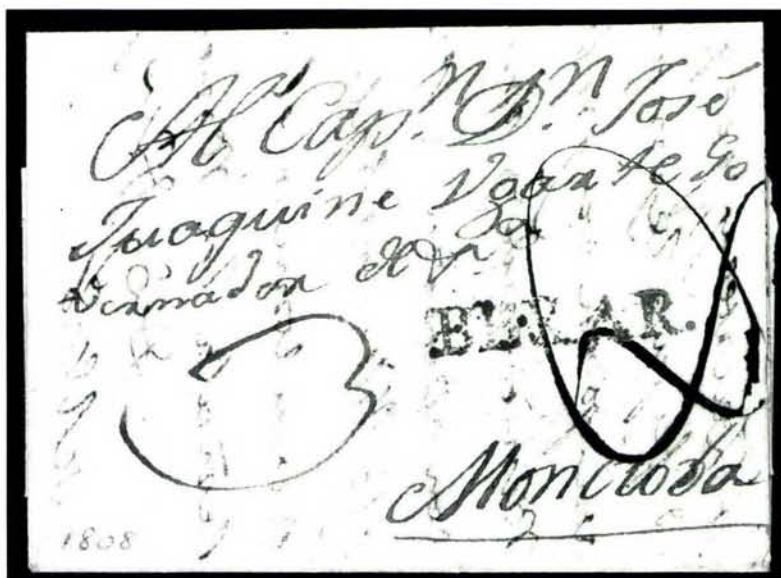 Al Cap.n D.n José
Juaquine Ugarte Go
vernador
BEJAR.
3
Monclova
1808